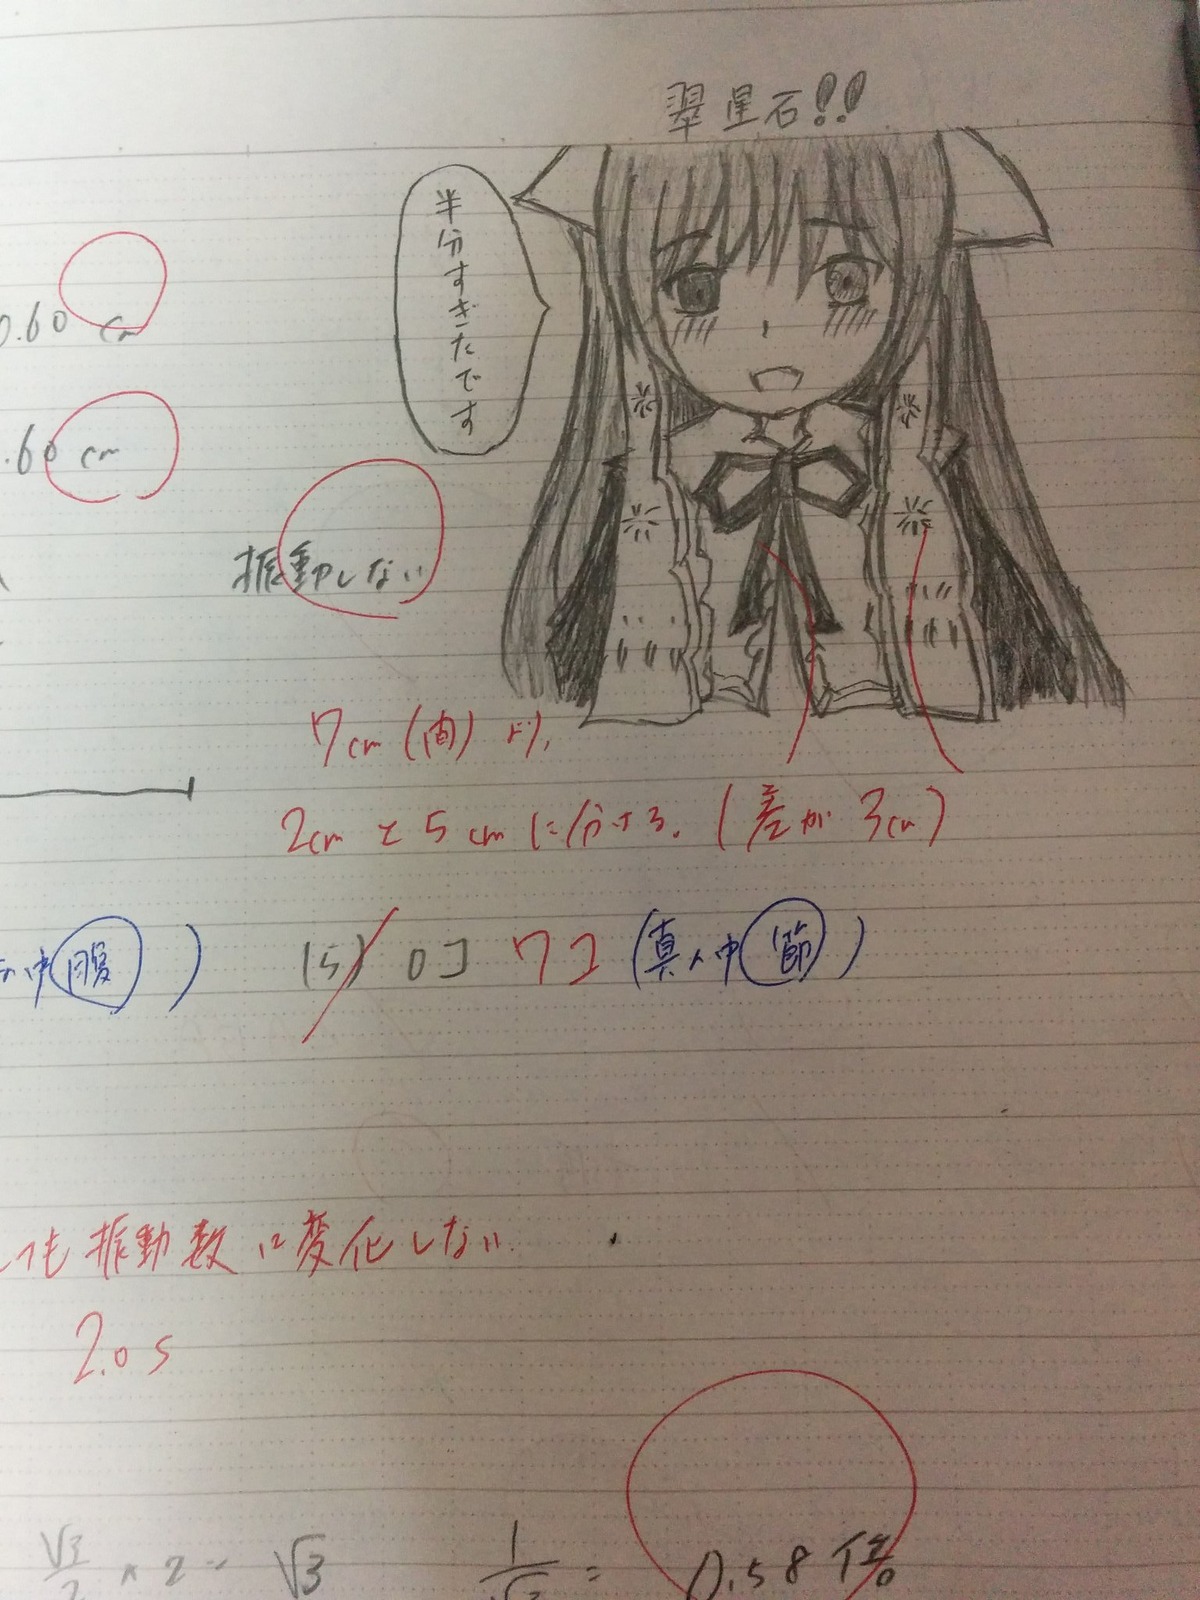 翠星石!!
半分すぎたです
0.60 cm
.60 cm
振動しない
7cm (歯) より,
2cm と 5cm に分ける. (差が 3cm)
中腹 )
(5) ロコ ワコ (真ん中 節 )
ても 振動数は変化しない.
2.0 s
√3/2 × 2 = √3
1/√3 = 0.58 倍